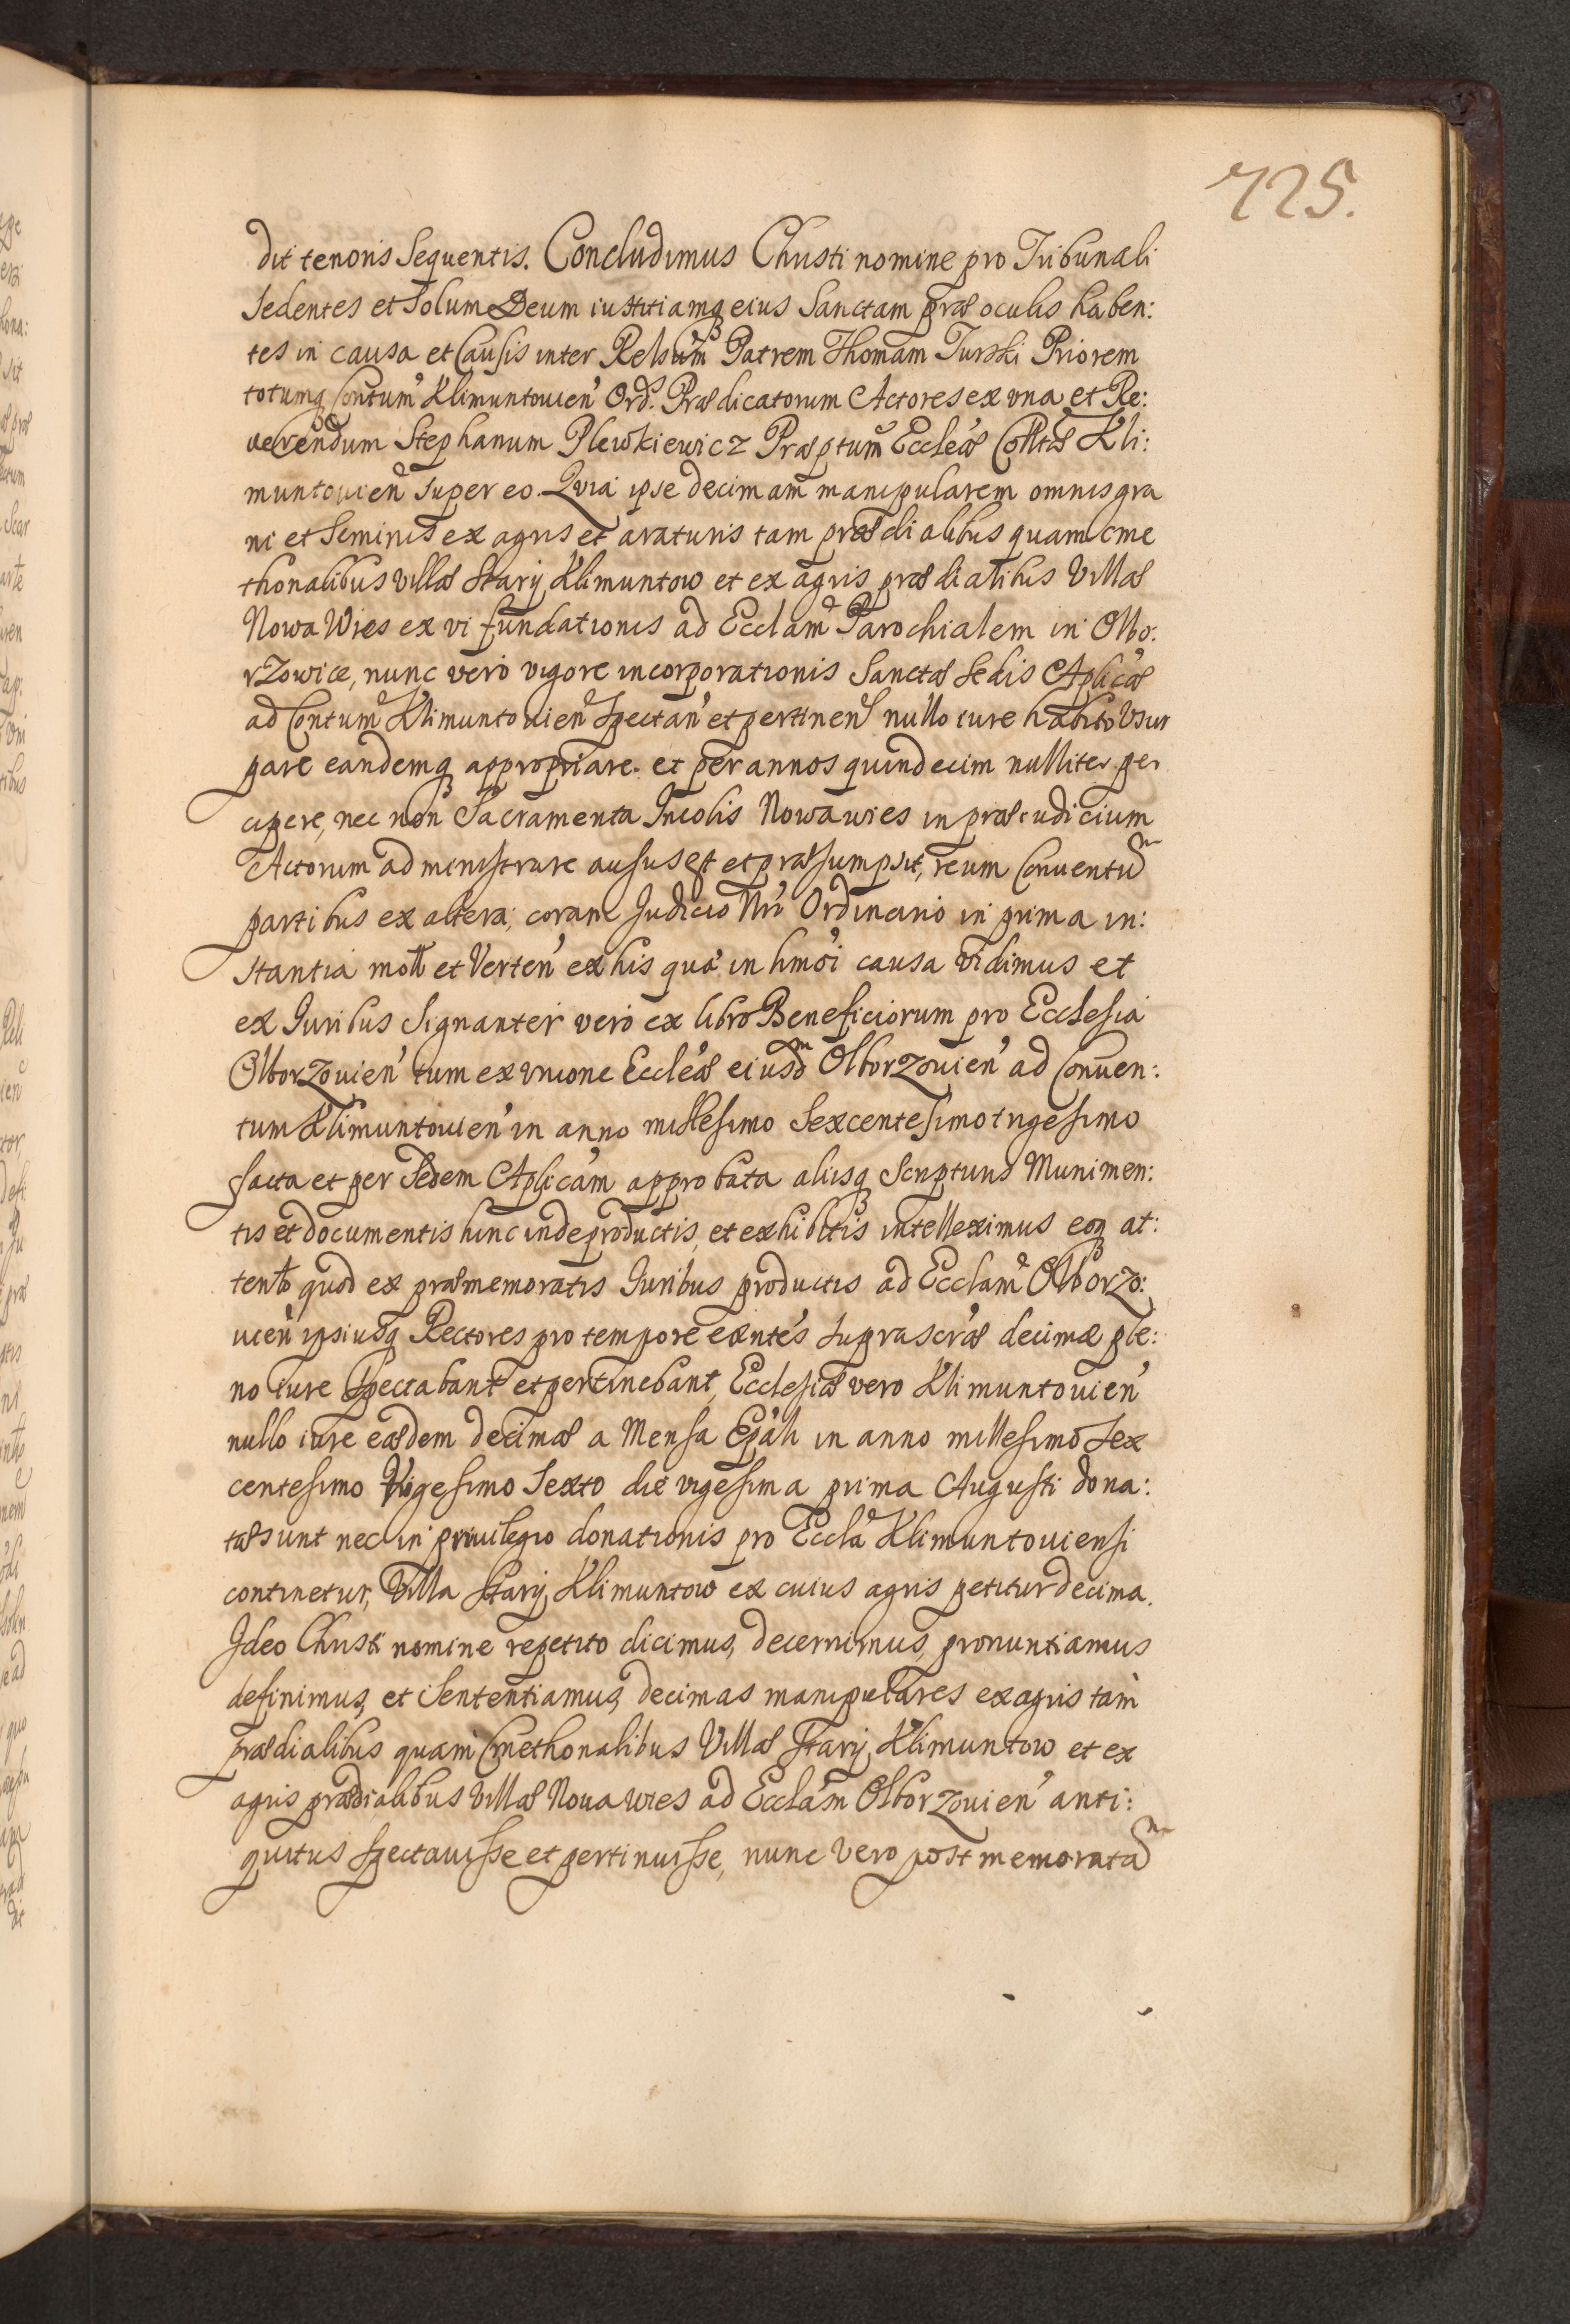 725.
dit tenoris Sequentis. Concludimus Christi nomine pro Tribunali
Sedentes et Solum Deum iustitiamq eius Sanctam præ oculis haben:
tes in causa et Causis inter Relsum Patrem Thomam Turski Priorem
totumq Contum Klimuntouien Ord. Prædicatorum Actores ex vna et Re:
verendum Stephanum Plewkiewicz Præptum Eccleæ Colltæ Kli:
muntouien super eo. Quia ipse decimam manipularem omnis gra
ni et Seminis ex agris et araturis tam prædialibus quam cme
thonalibus villæ Stary Klimuntow et ex agris prædialibus Villæ
Nowa Wies ex vi fundationis ad Ecclam Parochialem in Olbo:
rzowice, nunc vero vigore incorporationis Sanctæ Sedis Aplicæ
ad Contum Klimuntouien Spectan et pertinen nullo iure habito Vsur
pare eandemq appropriare et per annos quindecim nulliter per
cipere, nec non Sacramenta Incolis Nowawies in præiudicium
Actorum administrare ausus est et præsumpsit, reum Conuentum
partibus ex altera, coram Judicio Nro Ordinario in prima in:
stantia mott et Verten ex his quæ in hmoi causa vidimus et
ex Iuribus Signanter vero ex libro Beneficiorum pro Ecclesia
Olborzouien tum ex vnione Eccleæ eiusdm Olborzouien ad Conuen:
tum Klimuntouien in anno millesimo Sexcentesimo trigesimo
facta et per Sedem Aplicam approbata alijsq Scripturis Munimen:
tis et documentis hinc inde productis, et exhibitis intelleximus eoq at:
tento quod ex præmemoratis Iuribus productis ad Ecclam Olborzo:
uien ipsiusq Rectores pro tempore exntes suprascræ decimæ ple:
no iure Spectabant et pertinebant, Ecclesiæ vero Klimuntouien
nullo iure eædem decimæ a Mensa Epali in anno millesimo Sex
centesimo Vigesimo Sexto die vigesima prima Augusti dona:
tæ sunt nec in priuilegio donationis pro Eccla Klimuntouiensi
continetur, Villa Stary Klimuntow ex cuius agris petitur decima.
Ideo Christi nomine repetito dicimus, decernimus, pronuntiamus
definimus, et Sententiamus, decimas manipulares ex agris tam
prædialibus quam Cmethonalibus Villæ Stary Klimuntow et ex
agris prædialibus Villæ Noua wies ad Ecclam Olborzouien anti:
quitus Spectauisse et pertinuisse, nunc vero post memoratam